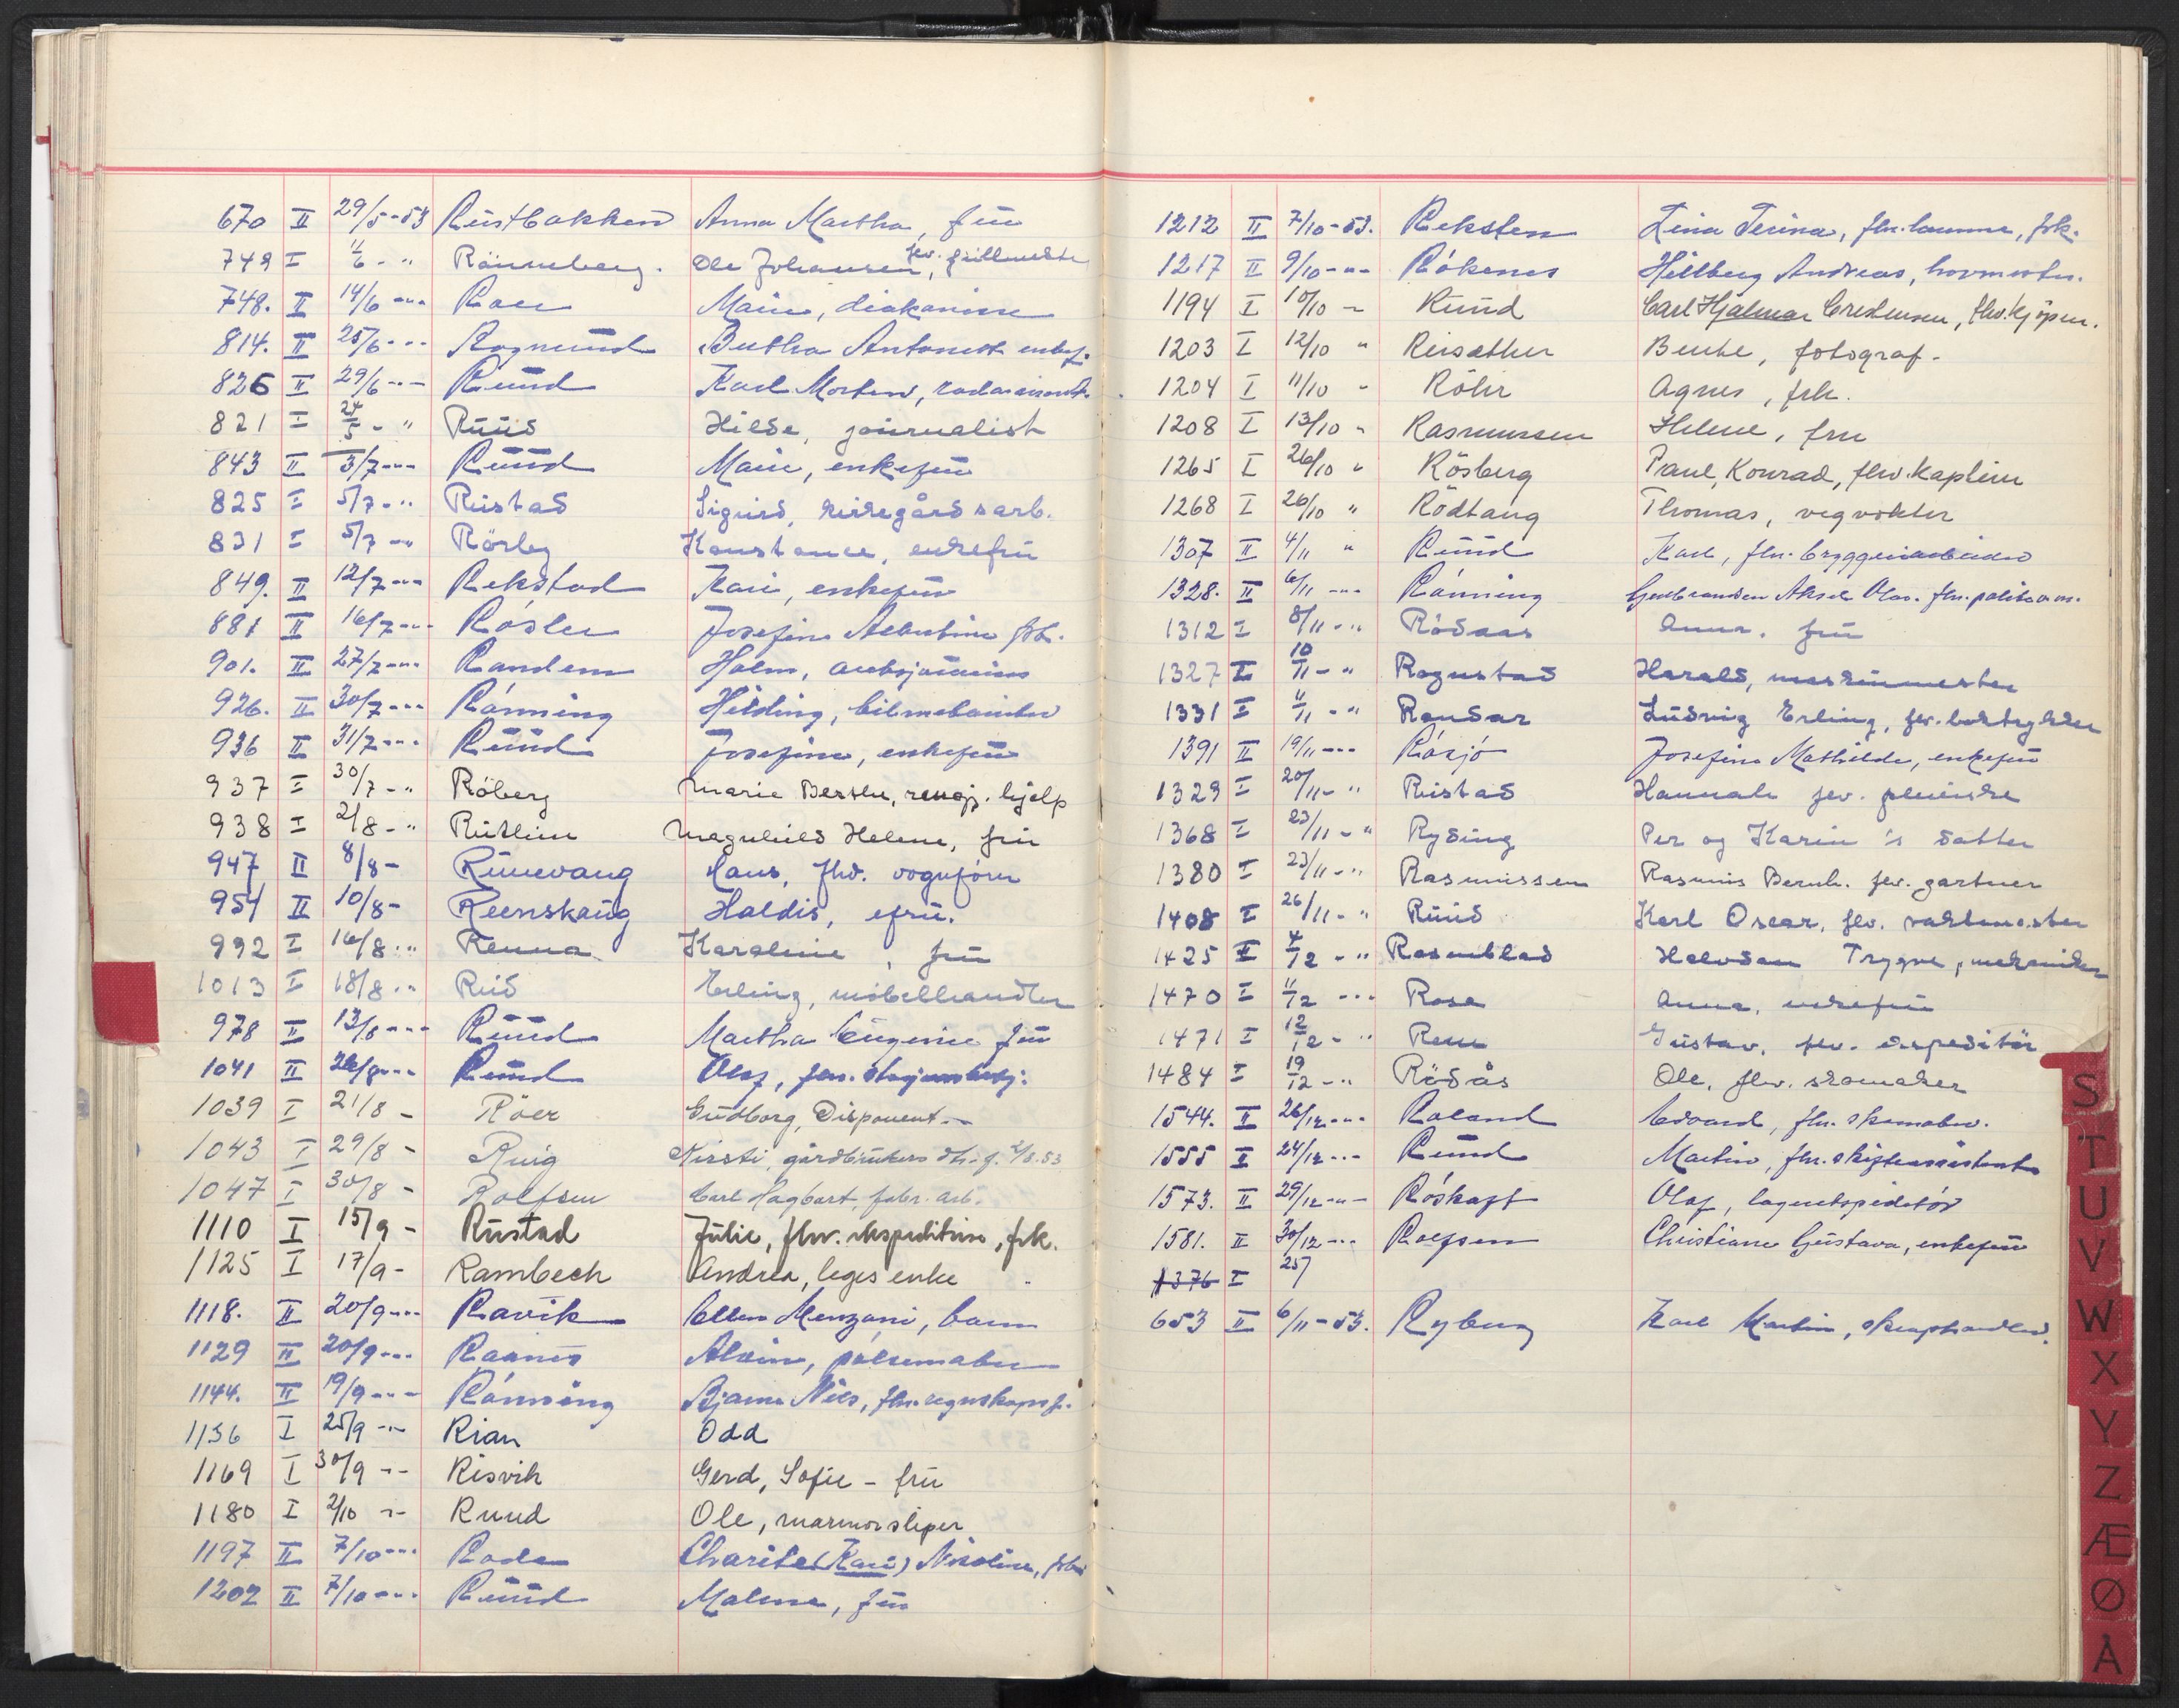 670 II 29/5-53 Rustbakken Anna Martha, fru
749 I 11/6 - " Rönneberg. Ole Johansen, fev. fullmekt.
748. II 14/6 -"- Roer Marie, diakonisse
814. II 25/6 -"- Rognerud Bertha Antonett enkef.
826 II 29/6 -"- Ruud Karl Morten,
821 I 24/5 - " Ruud Hilde, journalist
843 II 3/7 -"- Ruud Marie, enkefru
825 I 5/7 - " Rustad Sigurd, kirkegårdsarb.
831 I 5/7 -" Rörby Konstance, enkefru
849. II 12/7 -"- Rekstad Kari, enkefru
881 II 16/7 -"- Rösler Josefine Albertine frk.
901. II 27/7 -"- Randem Holm,
926. II 30/7 -"- Rönning Hilding, bilmekaniker
936 II 31/7 -"- Ruud Josefine, enkefru
937 I 30/7 - " Röberg Marie Bertha, rengj. hjelp
938 I 2/8 - " Rutlin Magnhild Helene, fru
947 II 8/8 - Runevang Hans, fhv. vognfører
954 II 10/8 - Reenskaug Haldis, efru.
992 I 16/8 - " Renna Karoline, fru
1013 I 18/8 - " Rud Erling, möbelhandler
978 II 13/8 -"- Ruud Martha Eugenie fru
1041 II 26/8 -"- Ruud Olaf, fhv.
1039 I 21/8 - Röer Gudborg, Disponent -
1043 I 29/8 - Ruig Kirsti, gårdbrukers df. f. 2/8.53
1047 I 30/8 - Rolfsen Carl Hagbart, fabr. arb.
1110 I 15/9 - Rustad Julie, fhv. ekspeditrise, frk.
1125 I 17/9 - Rambech Andrea, leges enke
1118. II 20/9 -"- Ravik Ellen Menzoni, barn
1129 II 20/9 -"- Raanes Alvin, pölsemaker
1144. II 19/9 -"- Rönning Bjarne Nils, fhv. regnskapsf.
1136 I 25/9 -"- Rian Odd
1169 I 30/9 -"- Risvik Gerd, Sofie - fru
1180 I 2/10 -"- Ruud Ole, marmorsliper
1197 II 7/10 -"- Rode Charite (Kari) Nicoline, frk.
1202 II 7/10 -"- Ruud Malene, fru
1212 II 7/10-53. Reksten Lina Terina, frk.
1217 II 9/10 -"- Rökenes Hellberg Andreas, hovmester.
1194 I 10/10 - Ruud Carl Hjalmar fhv. kjöpm.
1203 I 12/10 " Reisæther Bente, fotograf.
1204 I 11/10 - Röhr Agnes, frk.
1208 I 13/10 - Rasmussen Helene, fru
1265 I 26/10 " Rösberg Paul, Konrad, fhv. kaptein
1268 I 26/10 " Rödtang Thomas, vegvokter
1307 II 4/11 " Ruud Karl, fhv. bryggeriarbeider
1328. II 6/11 -"- Rönning Gulbrandsen Aksel Olav. fhv. politioverk.
1312 I 8/11 - " Rödaas Anna, fru
1327 I 10/11 - " Rognstad Harald, maskinmester
1331 I 11/11 - " Rondar Ludvig Erling, fev. boktrykker
1391 II 19/11 -"- Rösjö Josefine Mathilde, enkefru
1329 I 20/11 - " Rustad Hannah fev. pleierske
1368 I 23/11 - " Ryding Per og Karin 's datter
1380 I 23/11 - " Rasmussen Rasmus Bernh. fev. gartner
1408 I 26/11 - " Ruud Karl Oscar, fhv. vaktmester
1425 I 4/12 - " Rosenblad Halvdan Trygve, mekaniker
1470 I 11/12 -"- Rosa Anna, enkefru
1471 I 12/12 - " Rem Gustav, fhv. ekspeditör
1484 I 19/12 - " Rödås Ole, fhv. skomaker
1544. II 26/12 -"- Roland Edvard, fhv. skomaker.
1555 I 24/12 -"- Ruud Martin, fhv.
1573. II 29/12 -"- Röskaft Olaf, lagerekspeditör
1581. II 30/12 -"- Rolfsen Christiane Gustava, enkefru
1376 I 25/
653 II 6/11-53. Ryberg Karl Martin, skraphandler.
S
T
U
V
W
X
Y
Z
Æ
Ø
Å